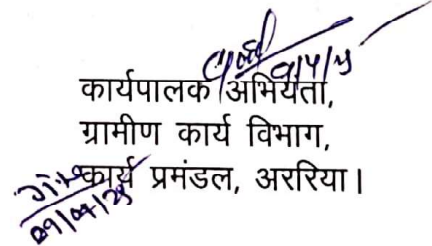 9/4/25
कार्यपालक अभियंता,
ग्रामीण कार्य विभाग,
कार्य प्रमंडल, अररिया।
09/04/25